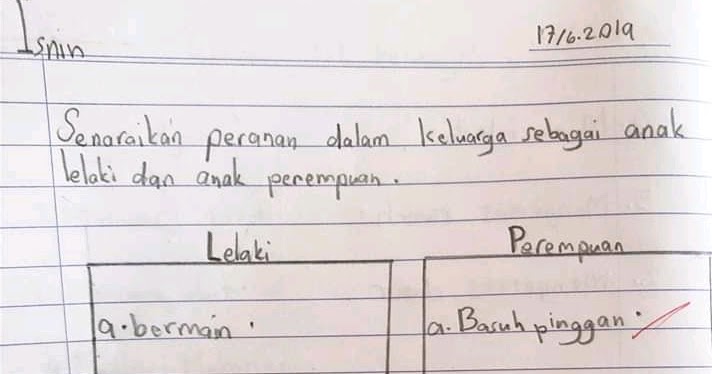 Isnin
17/6.2019
Senaraikan peranan dalam keluarga sebagai anak
lelaki dan anak perempuan.
Lelaki
Perempuan
a. bermain.
a. Basuh pinggan.